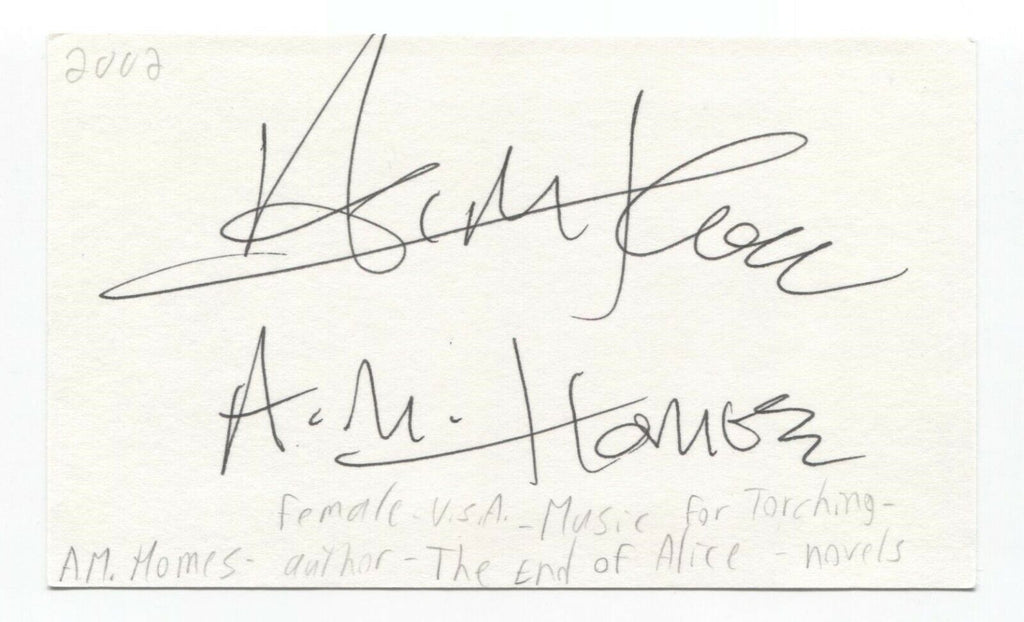 2002
A.M. Homes
female - U.S.A. - Music for Torching -
A.M. Homes - author - The End of Alice - novels